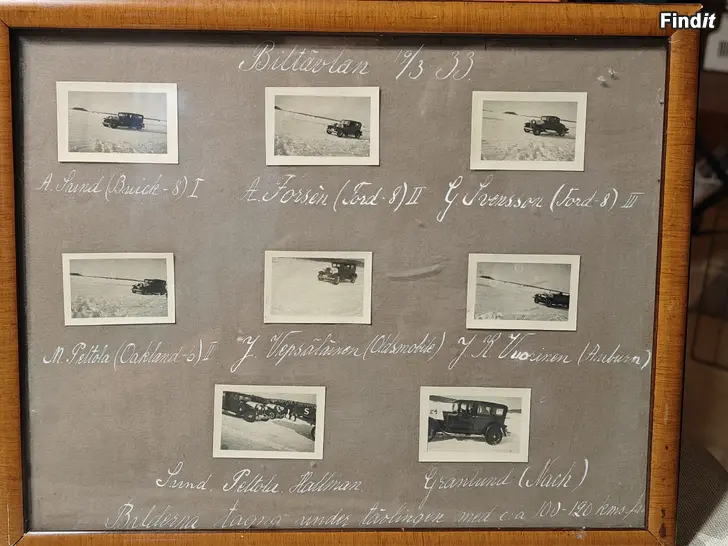 Findit
Biltävlan 19/3-33
A. Sund (Buick-8) I A. Forsén (Ford-8) II G Svensson (Ford-8) III
M. Peltola (Oakland-6) I J. Vepsäläinen (Oldsmobile) J. R Vuorinen (Auburn)
Sund. Peltola. Hallman Granlund (Nach)
Bilderna tagna under tävlingen med c:a 100-120 kms/